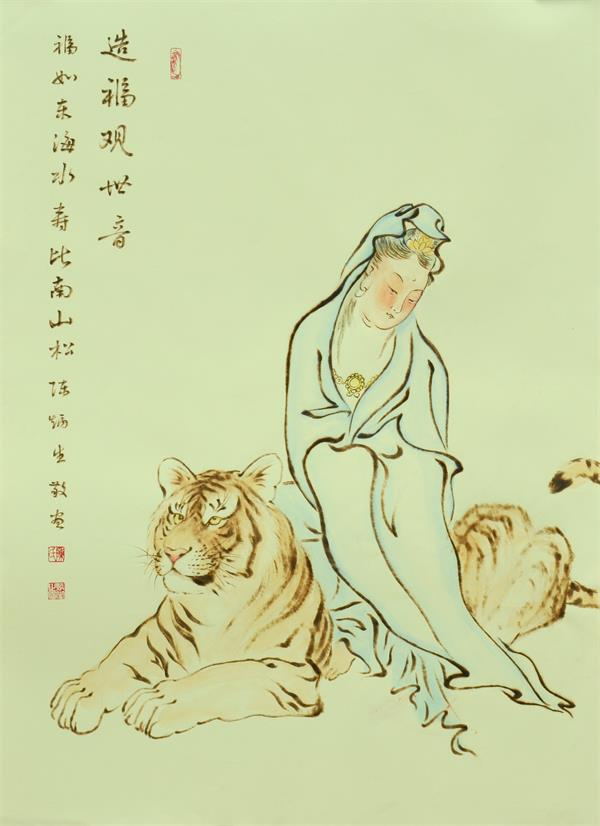 造福观世音
福如东海水寿比南山松陈炳生敬画